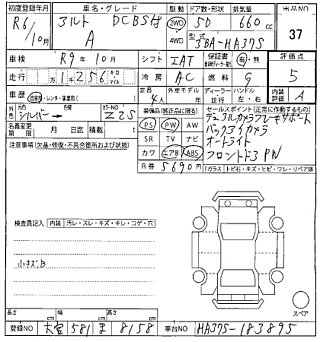 初度登録年月 車名・グレード 駆動 ドア数・形状 排気量
R6/10月 アルト DCBS付 A 2WD 4WD 5D 660cc
型式 3BA-HA37S
37
車検 R9年10月 シフト IAT 保証書 有・無 評価点
走行 1,256 冷房 AC 燃料 G 5
車歴 自家用・レンタ・事業用 定員 4人 外装モデル ディーラー ハンドル 左・右 内装評価 A
外色 シルバー→ カラーNO Z2S
装備(純正品に限る) セールスポイント(正常に作動するもの)
PS PW AW デュアルカメラブレーキサポート
名義変更期限 月 日迄 積載 t
SR TV ナビ バックアイカメラ
注意事項(欠品・修復・不具合箇所および状態)
カワ エアB ABS オートライト
R券 5690円 フロントドアPW
検査員記入 内装 汚れ・スレ・キズ・キレ・コゲ・穴
小キズB
長さ cm 幅 cm 高さ cm
スペア
登録NO 大宮 581 ま 8158 車台NO HA37S-183895